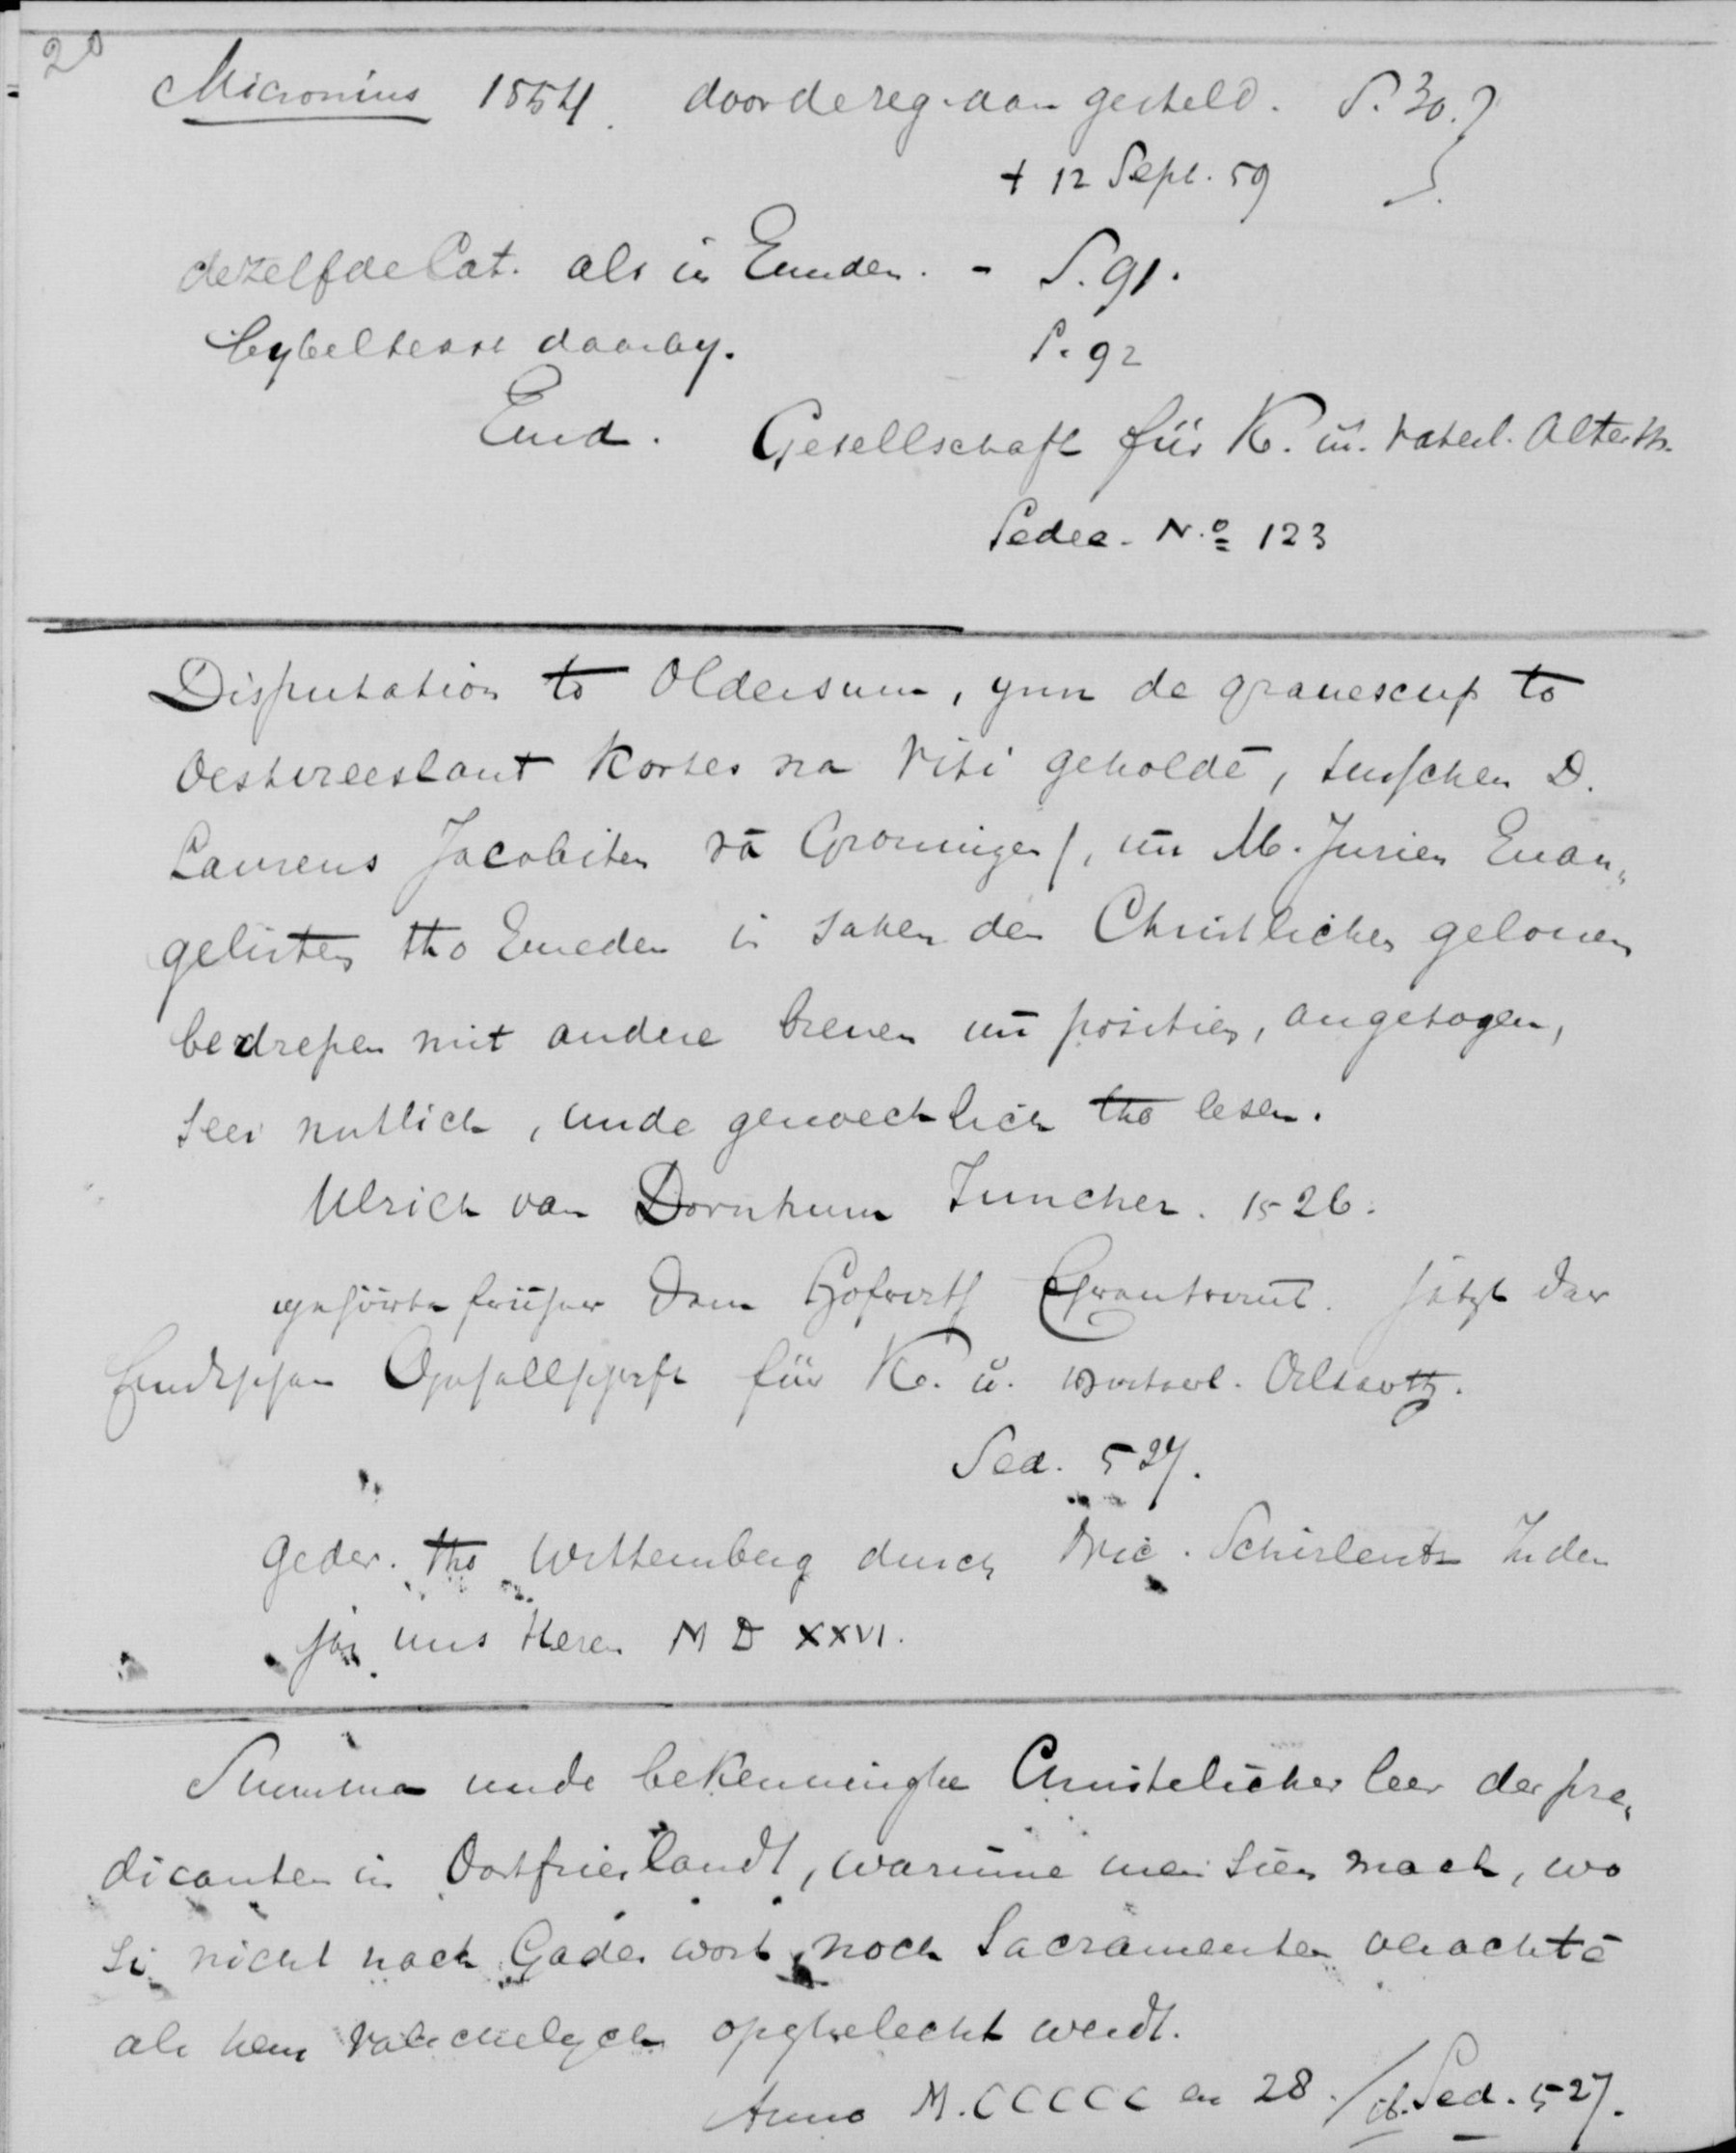 20
Micronius 1554. door de reg. aan gesteld. S. 30.
+ 12 Sept. 59
dezelfde Cat. als in Emden. - S. 91.
bybeltexte daarby. S. 92
Emd. Gesellschaft für K. u. vaterl. Alterth.
Sedec. No 123
Disputation to Oldersum, ynn de grauescup to
Oestvreeslant kortes na Viti geholdē, tusschen D.
Laurens Jacobiten vā Groningen, un̄ M. Jurien Euan„
gelisten tho Emeden in saken des Christliches gelouen
bedrepen mit andere breuen un̄ positien, angetogen,
seer nutlich, unde genoechlich tho lesen.
Ulrich van Dornhum Juncher. 1526.
gehörte früher dem Hofrath jetzt der
Emdischen Gesellschaft für K. u. vaterl. Alterth.
Sed. 527.
Gedr. tho Wittemberg durch Nic. Schirlentz In den
jar uns Heren M D XXVI.
Summa unde bekenninghe Christelicher leer der pre„
dicanten in Oostfrieslandt, warinne men sien mach, wo
si nicht noch Gades wort, noch Sacramenten verachtē
als hem valschelych opghelecht werdt.
Anno M.CCCCC en 28. / ib. Sed. 527.